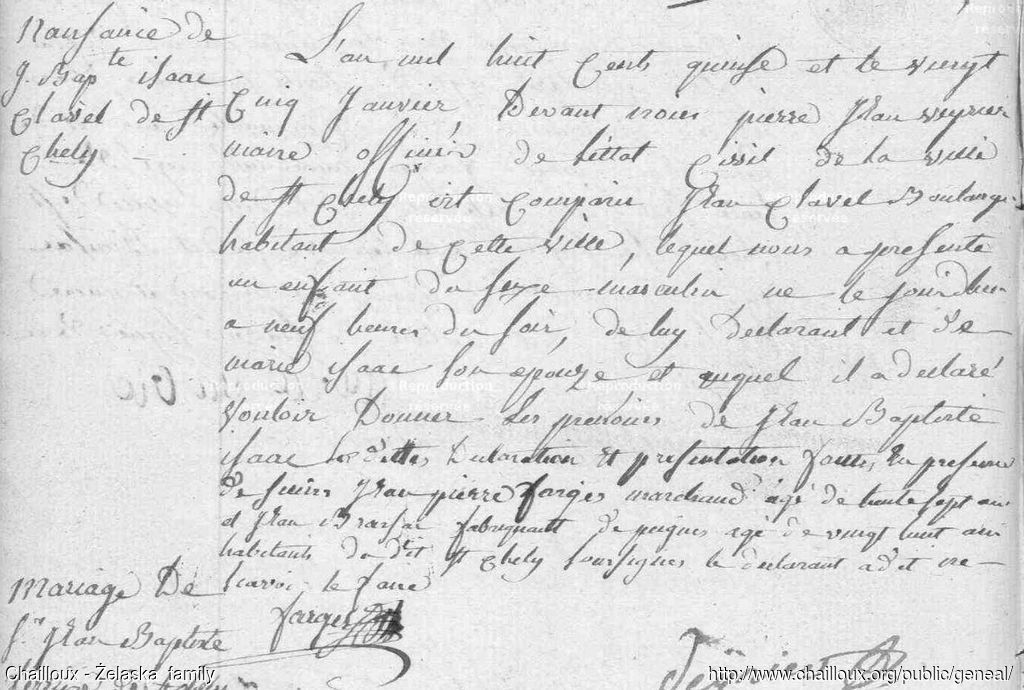 Naissance de
J. Bapte isaac
Clavel de St
Chely
L'an mil huit Cents quinse et le vingt
Cinq Janvier, Devant nous pierre Jean veyrier
maire officier de lettat Civil de la ville
de St Chely est Comparu Jean Clavel Boulanger
habitant de Cette ville, lequel nous a presenté
un enfant du sexe masculin né le jourdhui
a neuf heures du soir, de luy Declarant et de
marie isaac son épouze et auquel il a declaré
vouloir Donner les prenoms de Jean Baptiste
isaac les dittes Declaration et presentation faites En presence
de sieurs Jean pierre farges marchand agé de trente sept ans
et Jean Brassac fabriquant de peignes agé de vingt huit ans
habitants du dit St Chely soussignes le declarant a dit ne
scavoir le faire
farges
Veyrier
Mariage De
Sr Jean Baptiste
Reproduction
réservée
Reproduction
Reproduction
Reproduction
Chailloux - Żelaska family
http://www.chailloux.org/public/geneal/